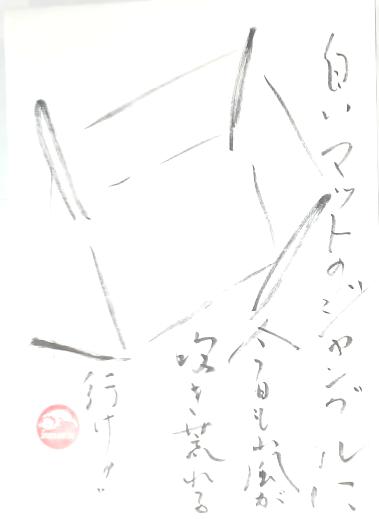 白いマットのジャングルに、
今日も嵐が
吹き荒れる
行け!!